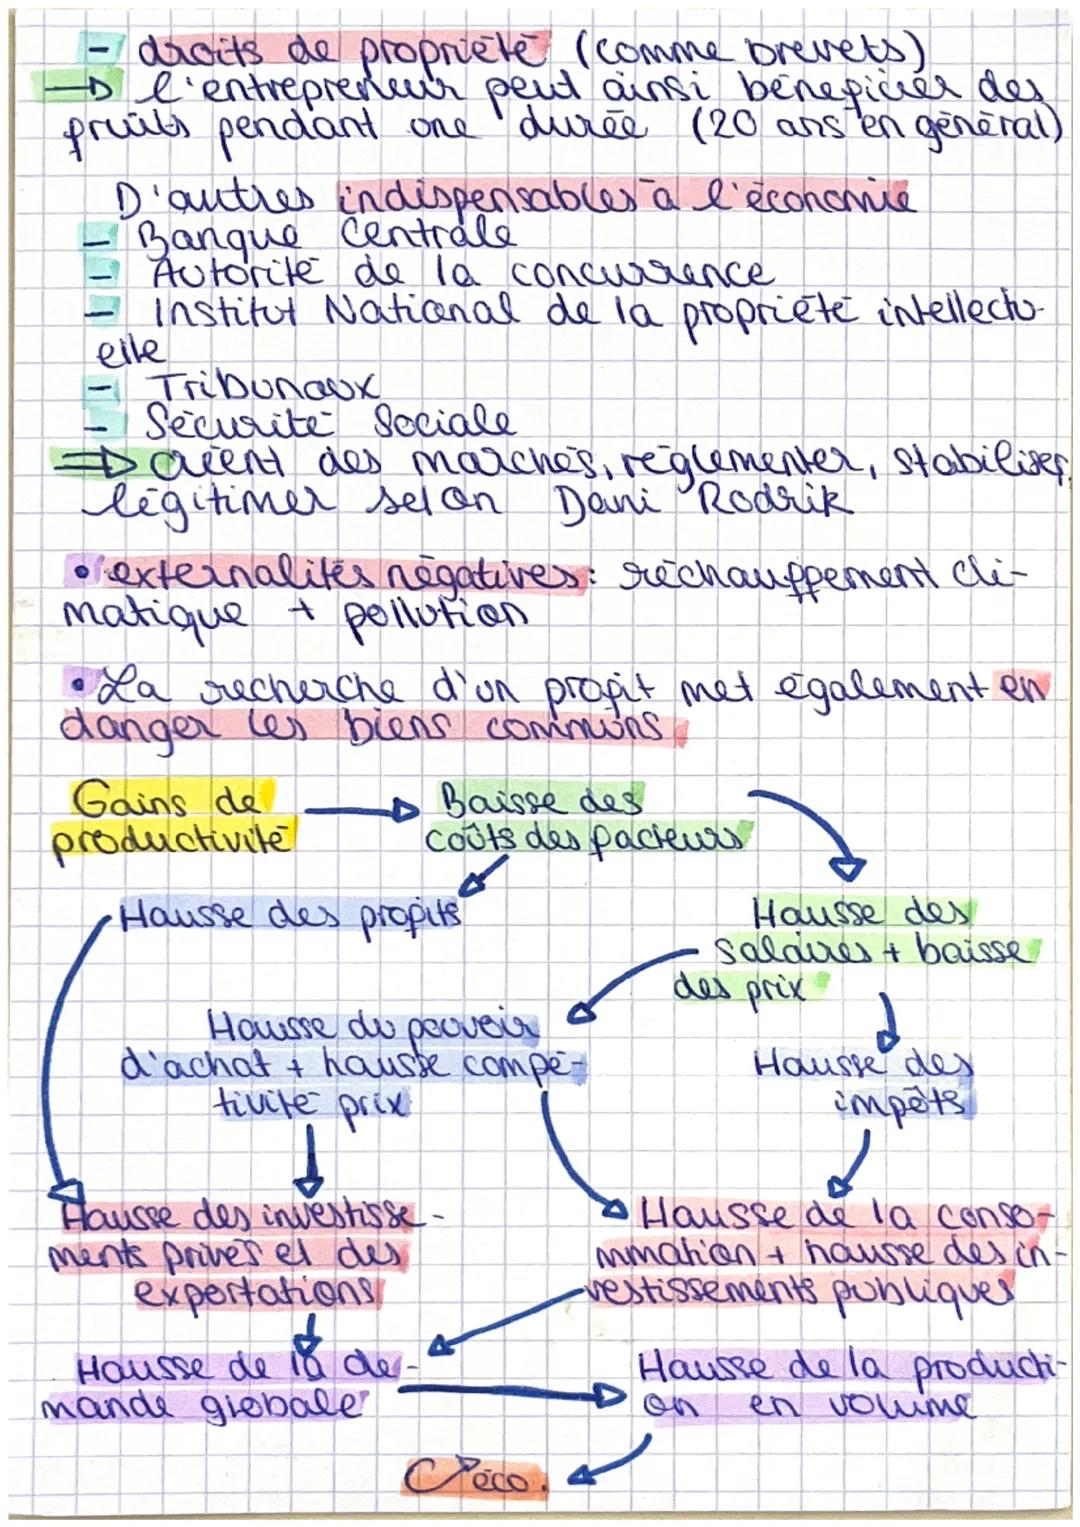 - droits de propriété (comme brevets)
→ l'entrepreneur peut ainsi bénéficier des
fruits pendant one durée (20 ans en général)
D'autres indispensables à l'économie
- Banque Centrale
- Autorité de la concurrence
- Institut National de la propriété intellectu-
elle
- Tribunaux
- Sécurité Sociale
⇒ créent des marchés, réglementer, stabiliser,
légitimer selon Dani Rodrik
• externalités négatives : réchauffement cli-
matique + pollution
• La recherche d'un profit met également en
danger les biens communs
Gains de
productivité
Baisse des
coûts des facteurs
Hausse des profits
Hausse des
salaires + baisse
des prix
Hausse du pouvoir
d'achat + hausse compé-
tivité prix
Hausse des
impôts
Hausse des investisse-
ments privés et des
exportations
Hausse de la conso-
mmation + hausse des in-
vestissements publiques
Hausse de la de-
mande globale
Hausse de la producti-
on en volume
C↗ éco.